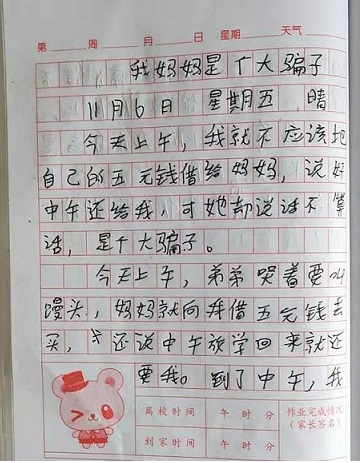 第 周 月 日 星期 天气
我妈妈是个大骗子
11月6日 星期五 晴
今天上午，我就不应该把
自己的五元钱借给妈妈，说好
中午还给我，可她却说话不算
话，是个大骗子。
今天上午，弟弟哭着要吃
馒头，妈妈就向我借五元钱去
买，还说中午放学回来就还
要我。到了中午，我
离校时间 午 时 分 作业完成情况
（家长签名）
到家时间 午 时 分